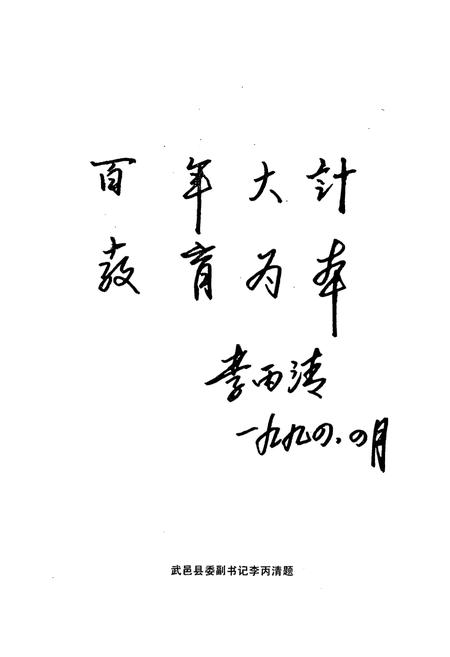 百年大計
教育为本
李丙清
一九九四.四月
武邑县委副书记李丙清题